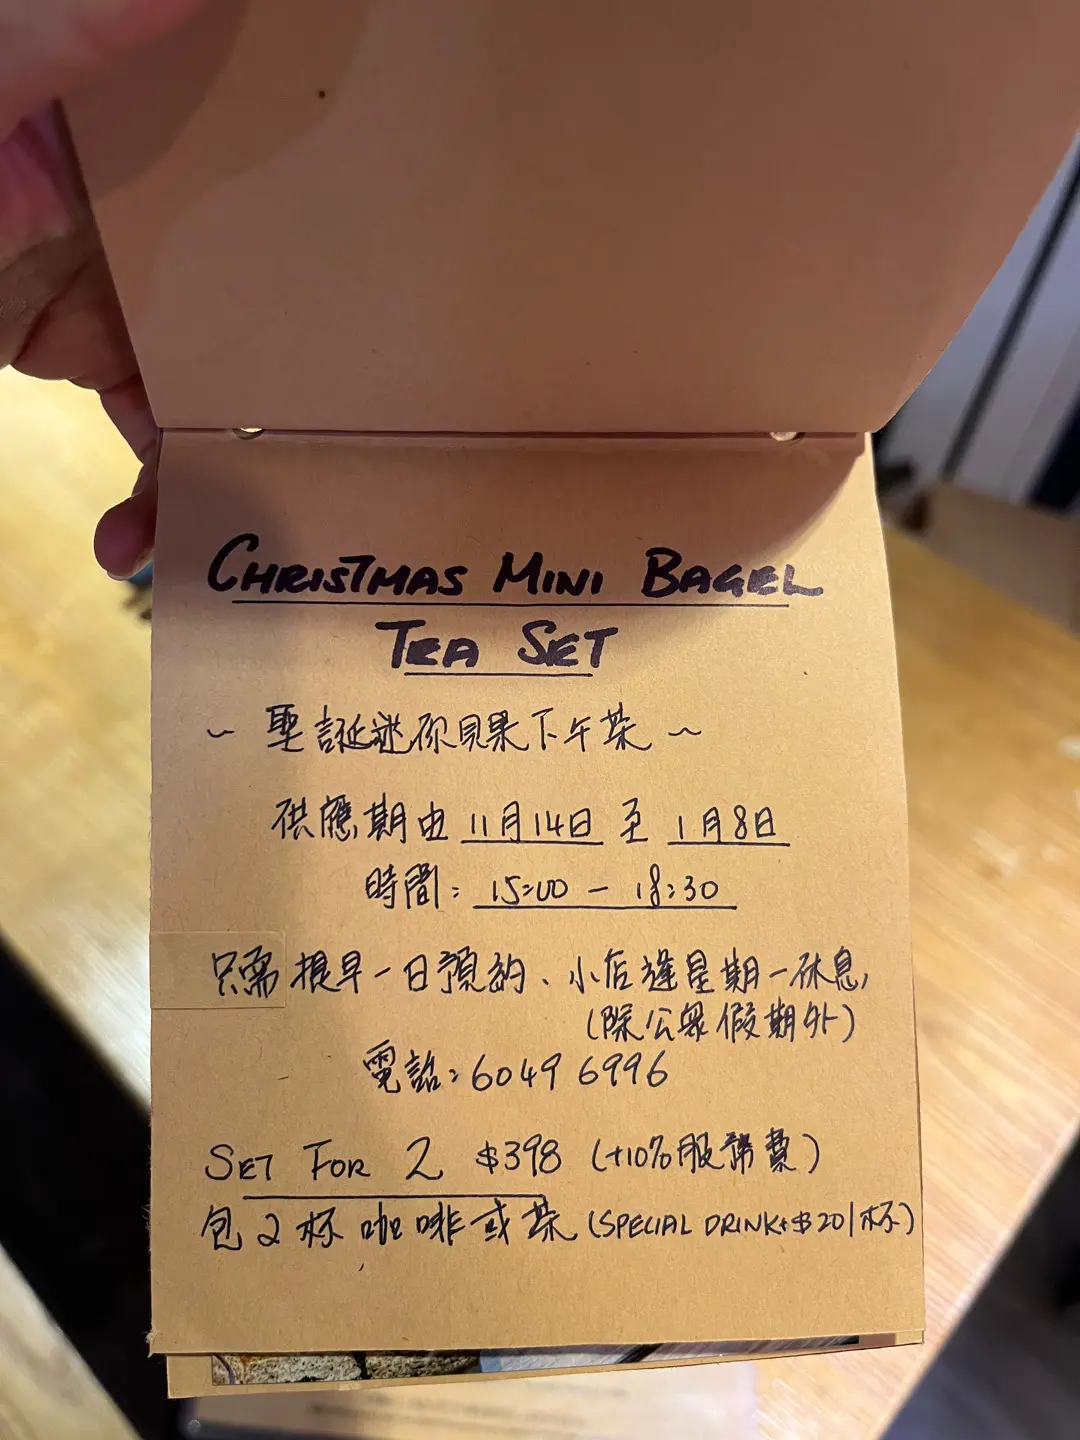 CHRISTMAS MINI BAGEL
TEA SET
~ 聖誕迷你貝果下午茶 ~
供應期由 11月14日 至 1月8日
時間: 15:00 - 18:30
只需提早一日預約、小店逢星期一休息,
(除公眾假期外)
電話: 6049 6996
SET FOR 2 $398 (+10%服務費)
包2杯咖啡或茶 (SPECIAL DRINK+$20/杯)